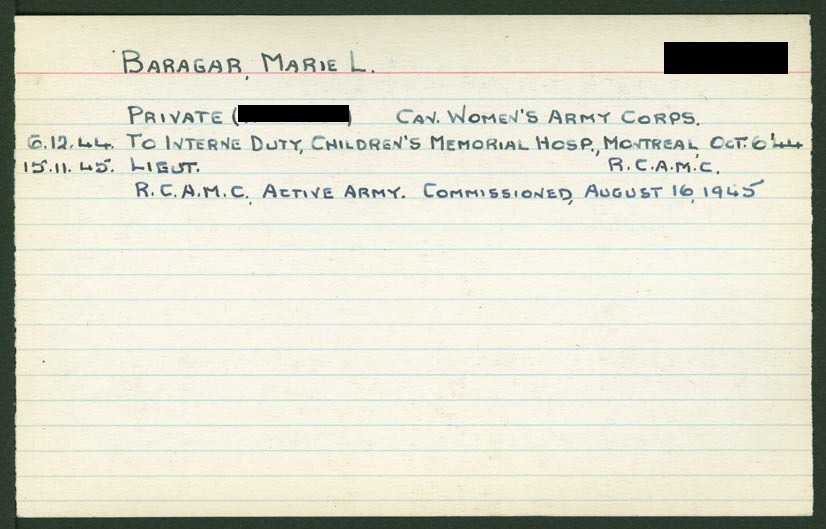 BARAGAR, MARIE L.
PRIVATE ( ) CAN. WOMEN'S ARMY CORPS.
6.12.44. TO INTERNE DUTY, CHILDREN'S MEMORIAL HOSP., MONTREAL, OCT. 6'44
15.11.45. LIEUT. R.C.A.M.C.
R.C.A.M.C., ACTIVE ARMY. COMMISSIONED, AUGUST 16, 1945